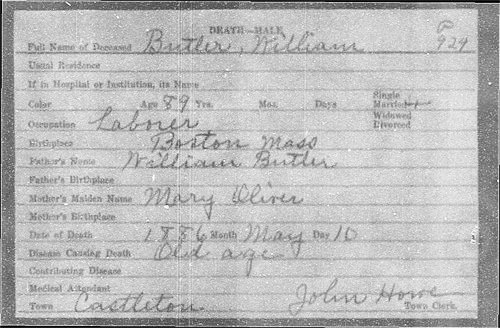 DEATH—MALE P 929
Full Name of Deceased Butler, William
Usual Residence
If in Hospital or Institution, its Name
Color Age 89 Yrs. Mos. Days Single Married Widowed Divorced
Occupation Laborer
Birthplace Boston Mass
Father's Name William Butler
Father's Birthplace
Mother's Maiden Name Mary Oliver
Mother's Birthplace
Date of Death 1886 Month May Day 10
Disease Causing Death Old age
Contributing Disease
Medical Attendant John Howe
Town Castleton Town Clerk.